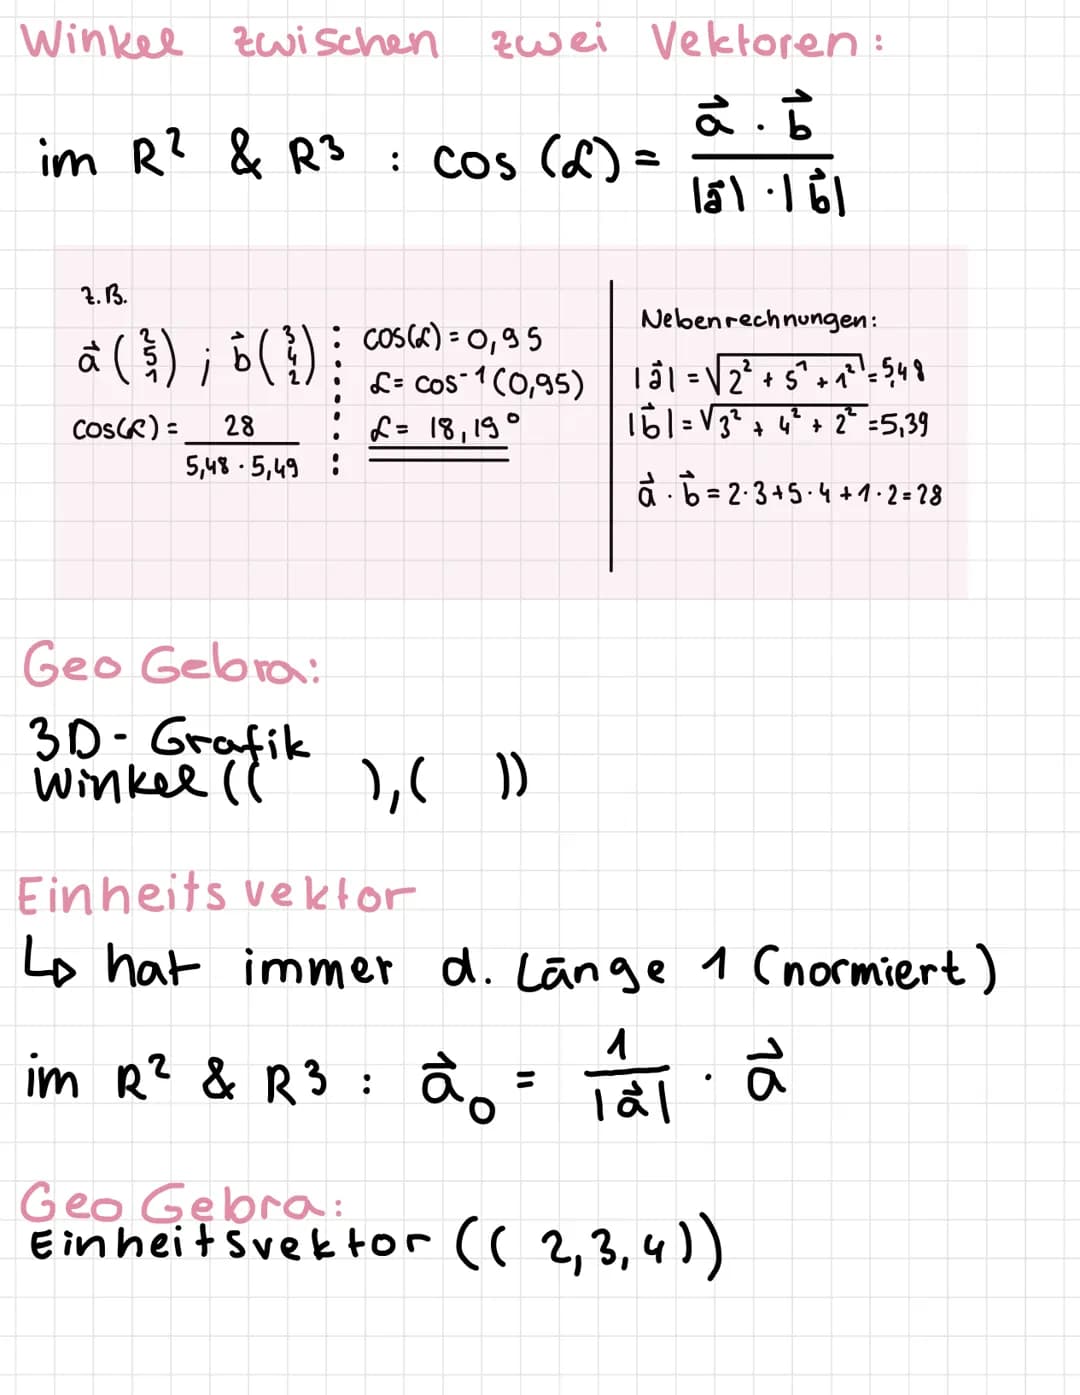 Winkel zwischen zwei Vektoren:
im R² & R³ : cos (α) = (a⃗ · b⃗) / (|a⃗| · |b⃗|)
z.B.
a⃗ (2 5 1) ; b⃗ (3 4 2)
cos(α) = 28 / (5,48 · 5,49)
cos(α) = 0,95
α = cos⁻¹ (0,95)
α = 18,19°
Nebenrechnungen:
|a⃗| = √(2² + 5² + 1²) = 5,48
|b⃗| = √(3² + 4² + 2²) = 5,39
a⃗ · b⃗ = 2·3+5·4+1·2=28
Geo Gebra:
3D - Grafik
Winkel (( ),( ))
Einheitsvektor
↳ hat immer d. Länge 1 (normiert)
im R² & R³ : a⃗₀ = 1/|a⃗| · a⃗
Geo Gebra:
Einheitsvektor (( 2,3,4))